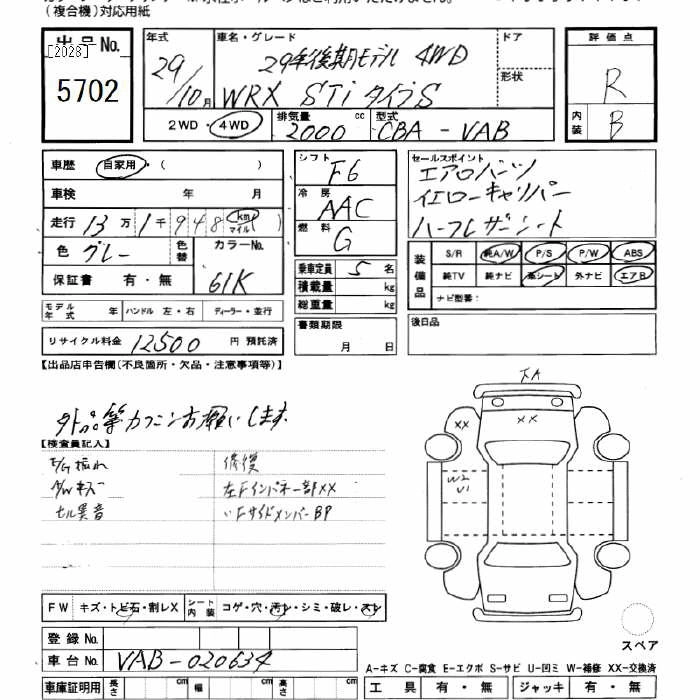 (複合機)対応用紙
出品No.
[2028]
5702
年式
29/10月
車名・グレード
29年後期モデル 4WD
WRX STi タイプS
ドア
形状
2WD・4WD
排気量
2000 cc
型式
CBA-VAB
評価点
R
内装
B
車歴 自家用・( )
車検 年 月
走行 13万1千948 km マイル ( )
色 グレー
色替
カラーNo.
61K
保証書 有・無
シフト
F6
冷房
AAC
燃料
G
乗車定員 5 名
積載量 kg
総重量 kg
書類期限
月 日
セールスポイント
エアロパーツ
イエローキャリパー
ハーフレザーシート
装備品
S/R 純A/W P/S P/W ABS
純TV 純ナビ 革シート 外ナビ エアB
ナビ型番:
後日品
モデル年式 年 月 ハンドル 左・右 ディーラー・並行
リサイクル料金 12500 円 預託済
【出品店申告欄(不良箇所・欠品・注意事項等)】
外品等カクニンお願いします
【検査員記入】
E/G振れ
A/Wキズ
セル異音
修復
左Fインパネー部XX
〃FサイドメンバーBP
XX
XX
W2
U1
FW キズ・トビ石・割レX
シート内装 コゲ・穴・汚レ・シミ・破レ・スレ
登録No.
車台No. VAB-020634
車庫証明用 長さ cm 幅 cm 高さ cm
スペア
A-キズ C-腐食 E-エクボ S-サビ U-凹ミ W-補修 XX-交換済
工具 有・無 ジャッキ 有・無